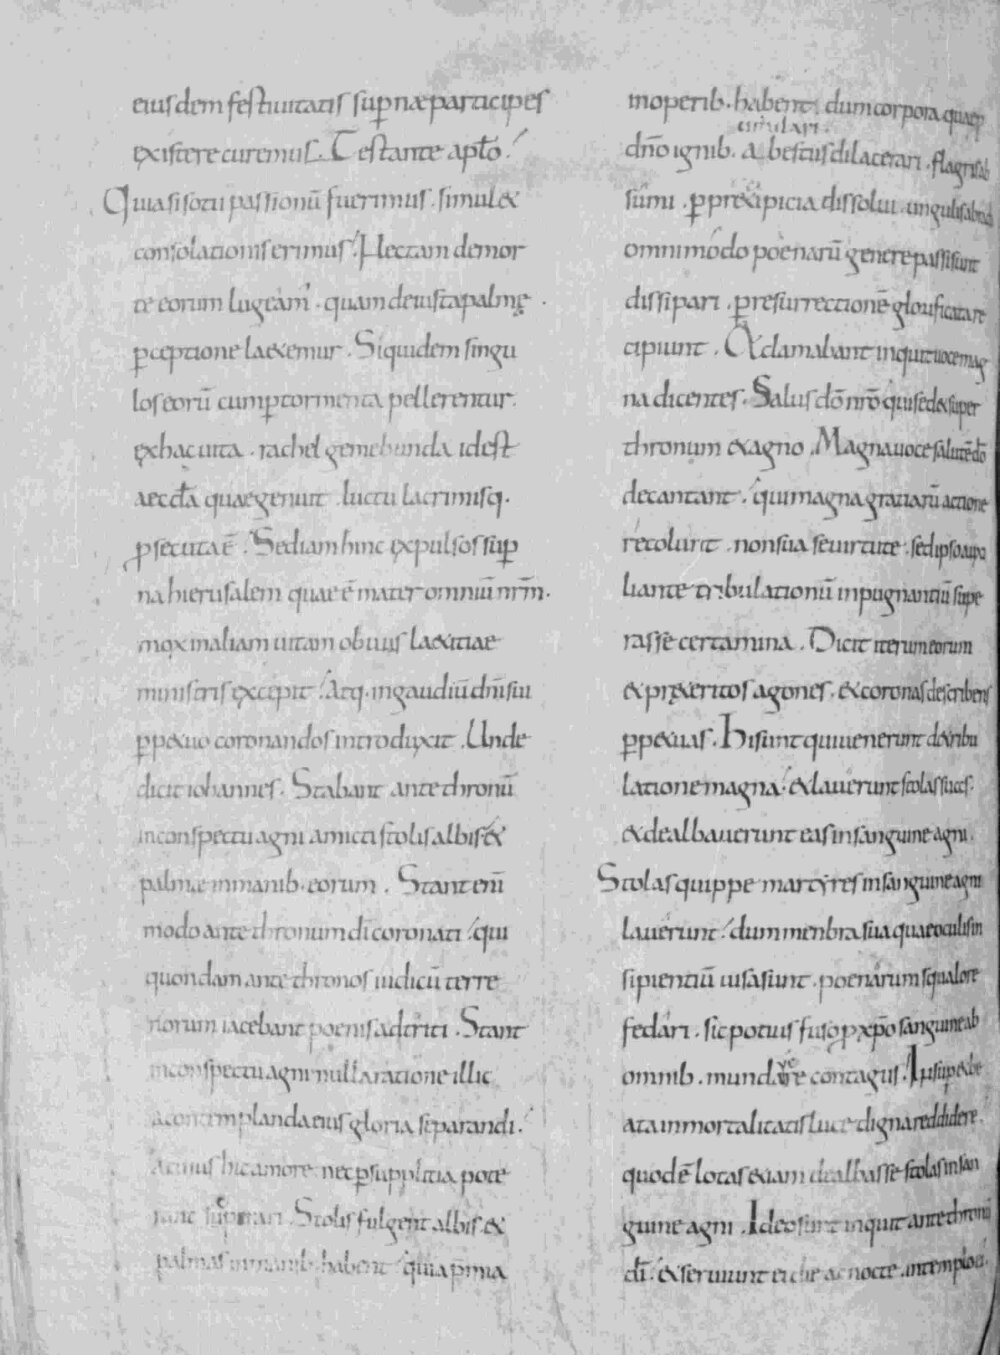 eiusdem festiuitatis sup̄næ participes
existere curemus. Testante aplo.
Quia si socii passionū fuerimus. simul &
consolationis erimus. Nec tam de mor
te eorum lugeam'. quam de iusta palmę
p̄ceptione laetemur. Siquidem singu
los eorū cum p̄ tormenta pellerentur.
ex hac uita. rachel gemebunda id est
aeccl̄a quae genuit luctu lacrimisq.
p̄secuta ē. Sed iam hinc expulsos sup̄
na hierusalem quae ē mater omniū nr̄m.
mox in aliam uitam obuiis laetitiae
ministris excepit. Atq. in gaudiū dn̄i sui
p̄petuo coronandos introduxit. Unde
dicit iohannes. Stabant ante thronū
in conspectu agni amicti stolis albis &
palmæ in manib. eorum. Stant enī
modo ante thronum dī coronati. qui
quondam ante thronos iudicū terre
norum iacebant poenis adtriti. Stant
in conspectu agni nulla ratione illic
a contemplanda eius gloria separandi.
a cuius hic amore nec p̄ supplicia pote
rant superari. Stolis fulgent albis &
palmas in manib. habent. qui a p̄mia
in operib. habent. dum corpora quae p̄
cumulari
dn̄o ignib. a bestiis dilacerari. flagris ab
sūmi. p̄ precipicia dissolui. ungulis abradi
omnimodo poenarū genere passi sunt
dissipari. p̄ resurrectionē glorificata re
cipiunt. Et clamabant inquit uoce mag
na dicentes. Salus dō nr̄o qui sed& super
thronum & agno. Magna uoce salutē dō
decantant. qui magna gratiarū actione
recolunt. non sua se uirtute. sed ipso auxi
liante tribulationū inpugnantiū supe
rasse certamina. Dicit iterum eorum
& preteritos agones. & coronas describens
p̄petuas. Hi sunt qui uenerunt de tribu
latione magna. & lauerunt stolas suas.
& dealbauerunt eas in sanguine agni.
Stolas quippe martyres in sanguine agni
lauerunt. dum menbra sua quae oculis in
sipientiū uisa sunt. poenarum squalore
fedari. sic potius fuso p xp̄o sanguine ab
omnib. mundare contagiis. Insup & be
ata inmortalitatis luce digna reddidere.
quod ē lotas etiam dealbasse stolas in san
guine agni. Ideo sunt inquit ante thronū
dī. & seruiunt ei die ac nocte. in templo ei.